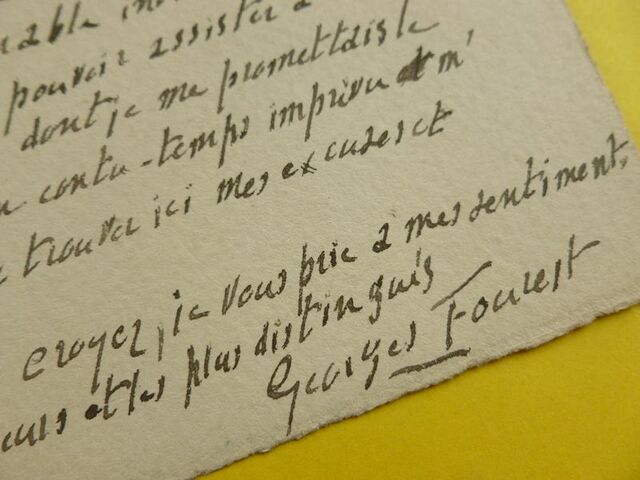 pouvoir assister à
dont je me promettais le
contre-temps imprévu et m'
trouver ici mes excuses et
croyez, je vous prie à mes sentiment.
eurs et les plus distingués
Georges Fourest